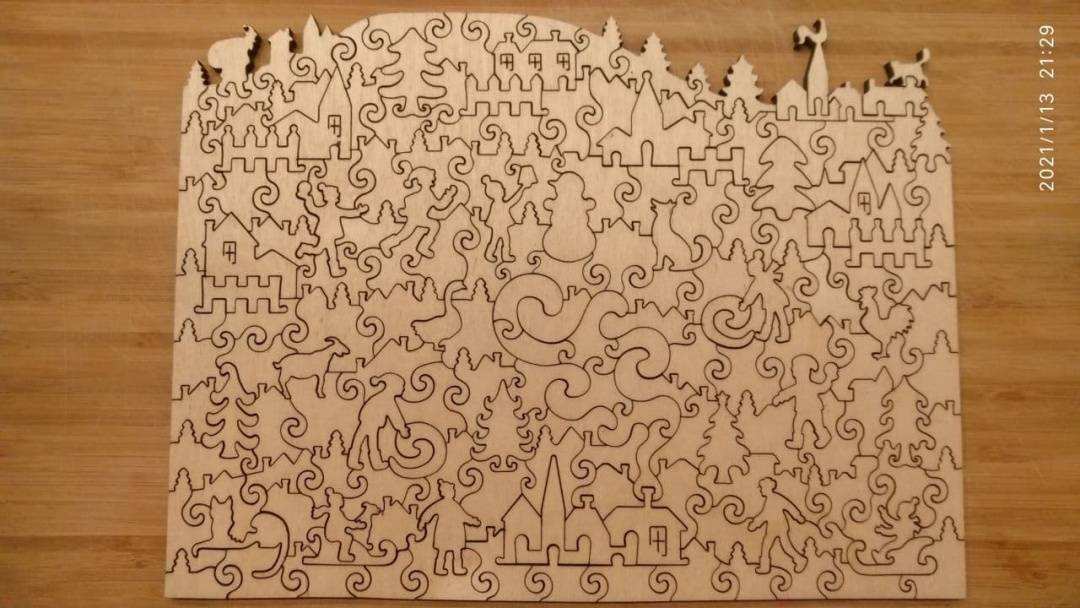 2021/1/13 21:29